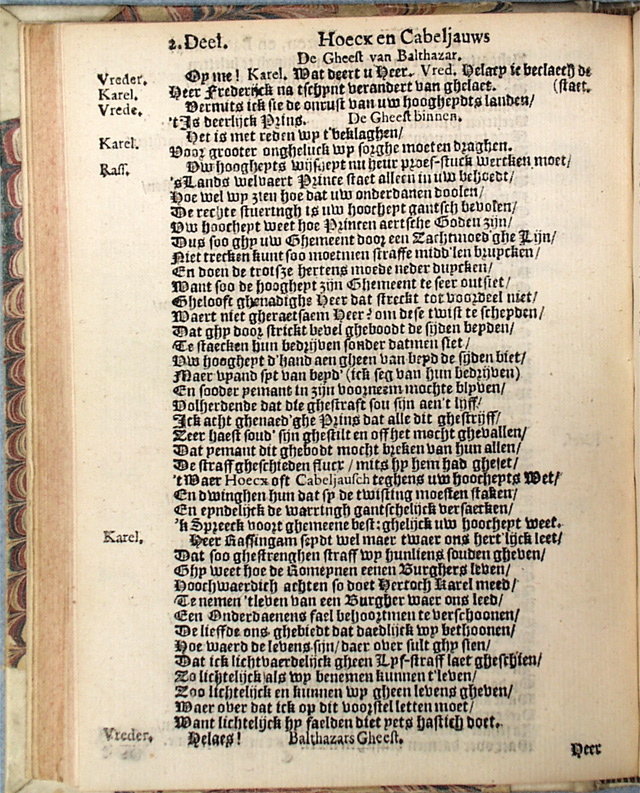 2. Deel. Hoecx en Cabeljauws
De Gheest van Balthazar.
Vreder. Oy me! Karel. Wat deert u Heer. Vred. Helaey ic beclaech de
Karel. Heer Frederijck na tschynt verandert van ghelaet. (staet.
Vrede. Vermits ick sie de onrust van uw hoogheydts landen/
't Is deerlijck Prins. De Gheest binnen.
Karel. Het is met reden wy t'beklaghen/
Voor grooter ongheluck wy sorghe moeten draghen.
Rass. Uw hoogheyts wijsheyt nu heur proef-stuck wercken moet/
's Lands welvaert Prince staet alleen in uw behoedt/
Hoe wel wy zien hoe dat uw onderdanen doolen/
De rechte stueringh is uw hoocheyt gantsch bevolen/
Uw hoocheyt weet hoe Princen aertsche Goden zijn/
Dus soo ghy uw Ghemeent door een Zachtmoed'ghe Lijn/
Niet trecken kunt soo moetmen straffe midd'len bruycken/
En doen de trotsze hertens moede neder duycken/
Want soo de hoogheyt zijn Ghemeent te seer ontsiet/
Ghelooft ghenadighe Heer dat streckt tot voordeel niet/
Waert niet gheraetsaem Heer? om dese twist te scheyden/
Dat ghy door strickt bevel gheboodt de sijden beyden/
Te staecken hun bedrijven sonder datmen siet/
Uw hoogheyt d'hand aen gheen van beyd de sijden biet/
Maer vyand syt van beyd' (ick seg van hun bedrijven)
En sooder yemant in zijn voorneem mochte blyven/
Volherdende dat die ghestraft sou sijn aen't lijff/
Ick acht ghenaed'ghe Prins dat alle dit ghestrijff/
Zeer haest soud' sijn ghestilt en off het mocht ghevallen/
Dat yemant dit ghebodt mocht breken van hun allen/
De straff gheschieden flucx / mits hy hem had gheset/
't Waer Hoecx oft Cabeljausch teghens uw hoocheyts Wet/
En dwinghen hun dat sy de twisting moesten staken/
En eyndelijck de warringh gantschelijck versaecken/
'k Spreeck voort ghemeene best: ghelijck uw hoocheyt weet.
Karel. Heer Rassingam seydt wel maer twaer ons hert'lijck leet/
Dat soo ghestrenghen straff wy hunliens souden gheven/
Ghy weet hoe de Romeynen eenen Burghers leven/
Hoochwaerdich achten so doet Hertoch Karel meed/
Te nemen 'tleven van een Burgher waer ons leed/
Een Onderdaenens fael behoortmen te verschoonen/
De lieffde ons ghebiedt dat daedlijck wy bethoonen/
Hoe waerd de levens sijn/ daer over sult ghy sien/
Dat ick lichtvaerdelijck gheen Lyf-straff laet gheschien/
Zo lichtelijck als wy benemen kunnen t'leven/
Zoo lichtelijck en kunnen wy gheen levens gheven/
Waer over dat ick op dit voorstel letten moet/
Want lichtelijck hy faelden diet yets hastich doet.
Vreder. Helaes! Balthazars Gheest.
Heer